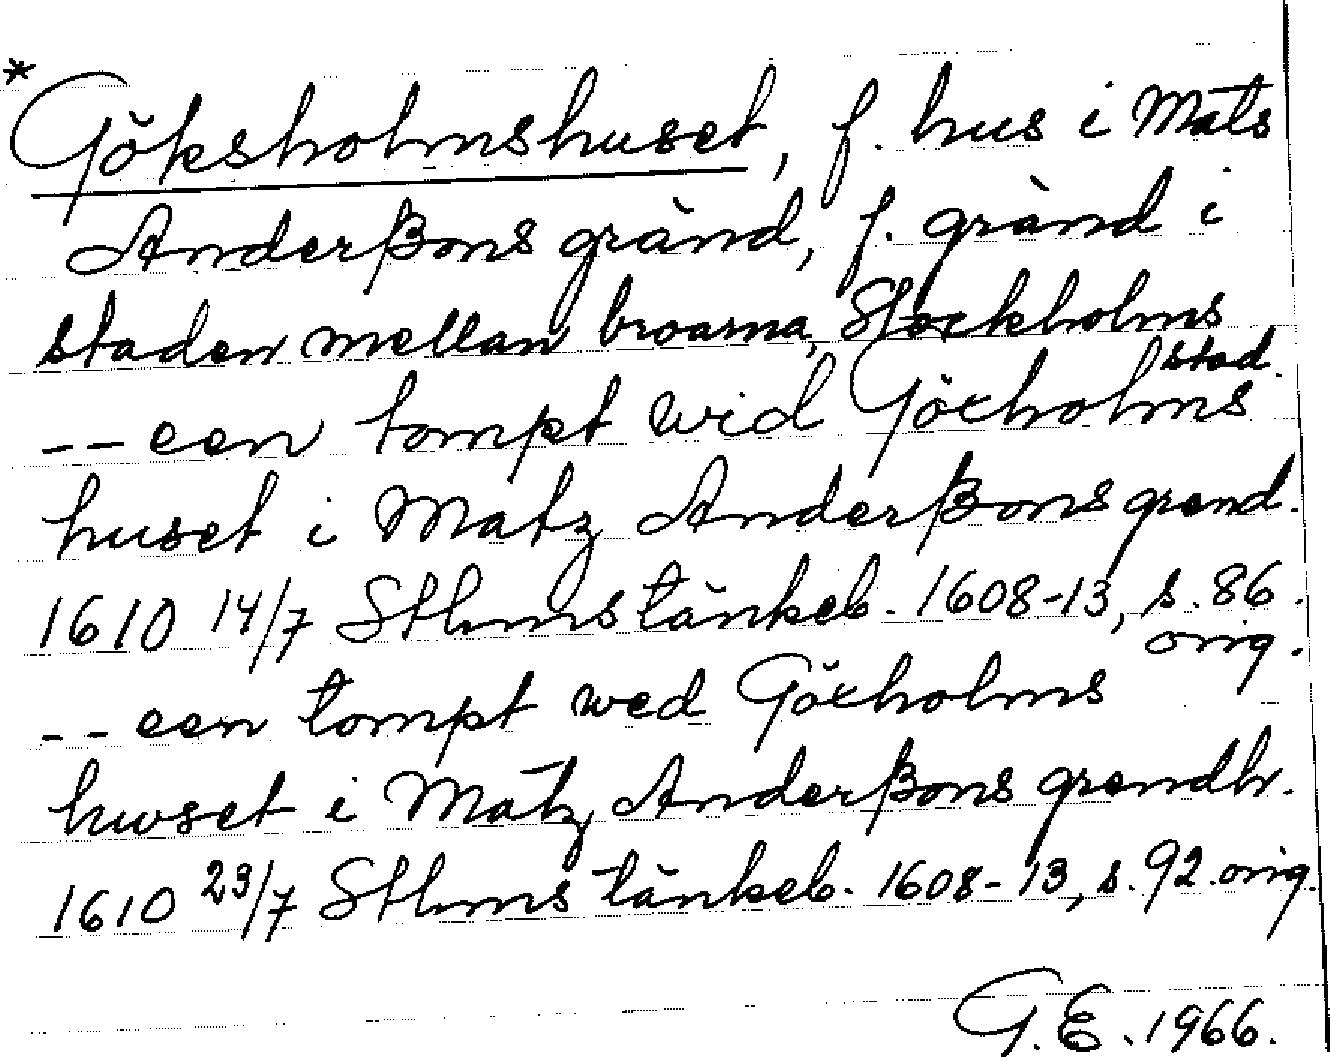 * Göksholmshuset, f. hus i Mats
Anderßons gränd, f. gränd i
staden mellan broarna, Stockholms
stad.
-- een tompt wid Göxholms
huset i Matz Anderßons grend.
1610 14/7 Sthms tänkeb. 1608-13, s. 86.
orig.
-- een tompt wed Göxholms
huset i Matz Anderßons grendh.
1610 23/7 Sthms tänkeb. 1608-13, s. 92 orig.
G.E. 1966.